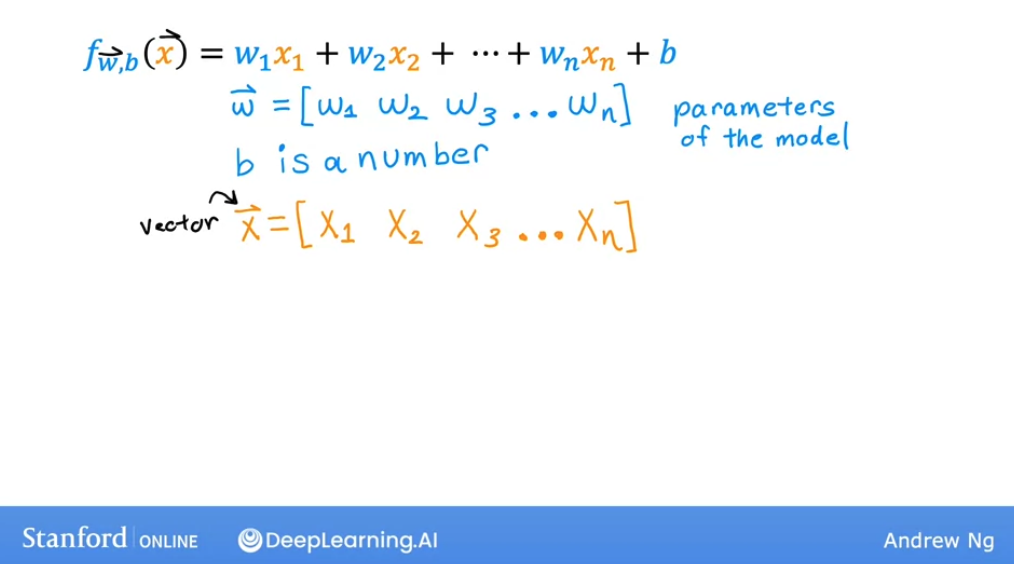 f w⃗,b (x⃗) = w₁x₁ + w₂x₂ + ⋯ + wₙxₙ + b
w⃗ = [w₁ w₂ w₃ ... wₙ] parameters of the model
b is a number
vector x⃗ = [x₁ x₂ x₃ ... xₙ]
Stanford ONLINE DeepLearning.AI Andrew Ng